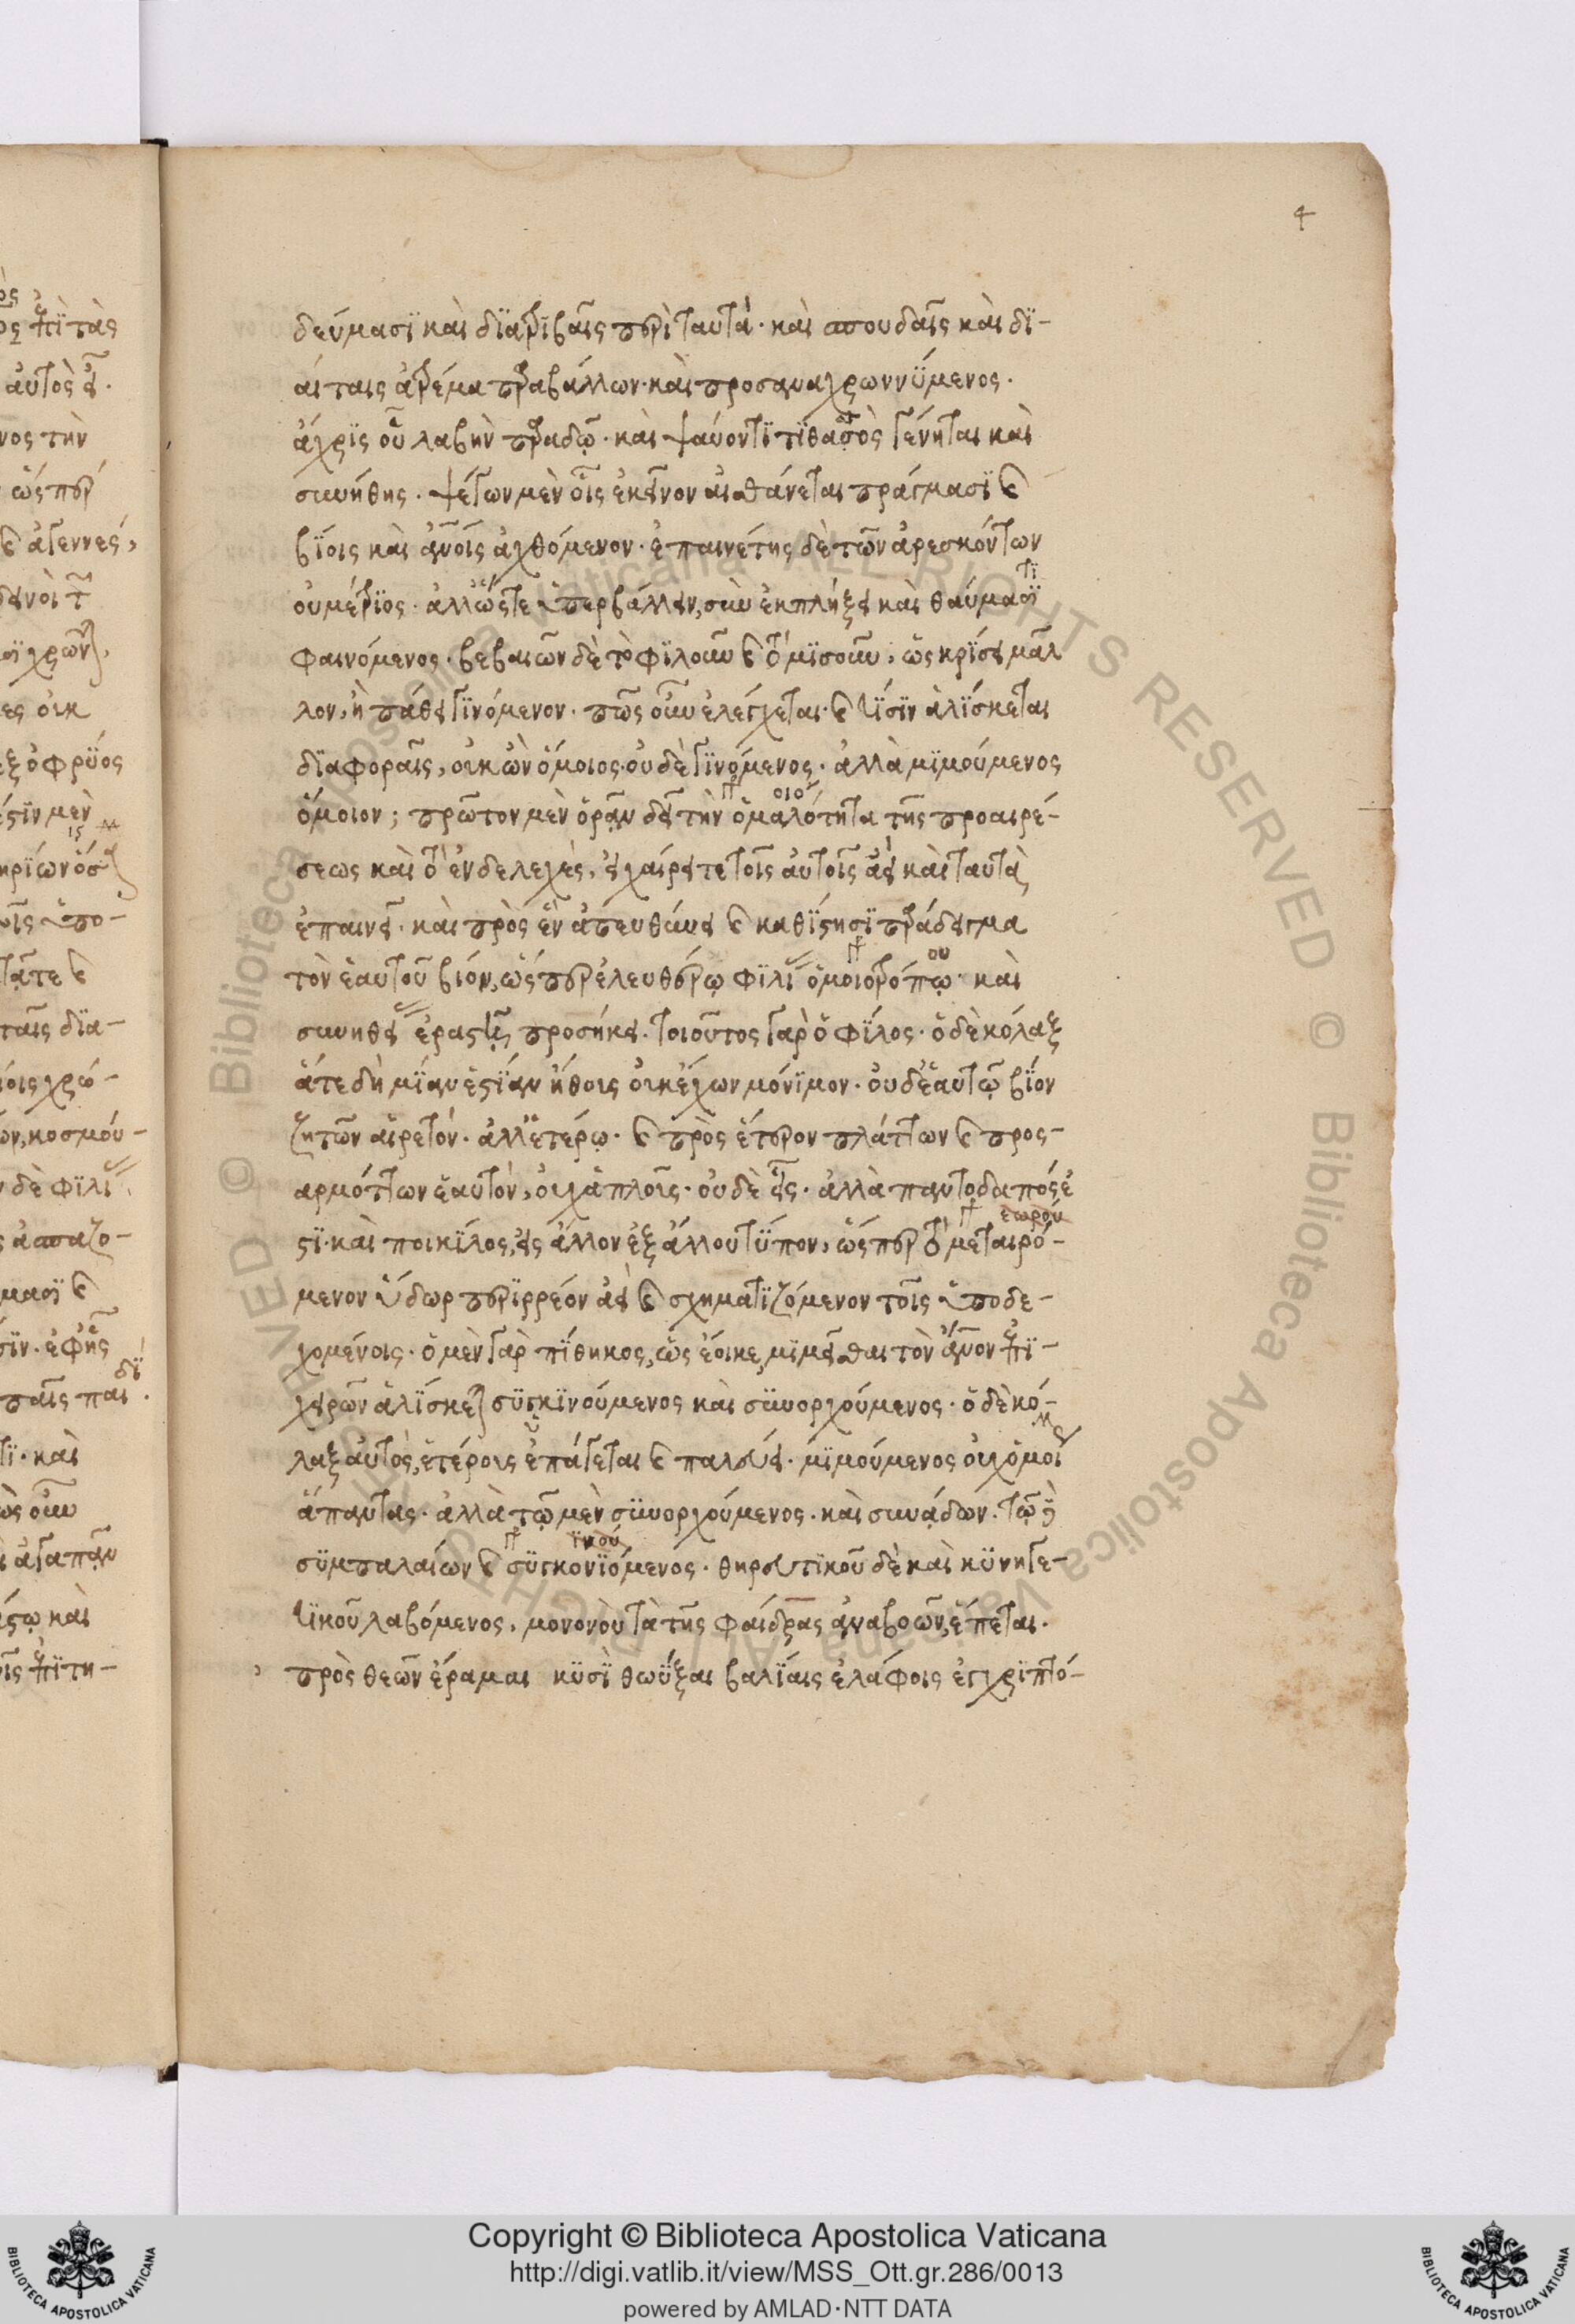 4
δεύμασϊ καὶ δϊατρϊβαῖς περὶ ταυτά· καὶ σπουδαῖς καὶ δϊ-
αίταις ἀτρέμα παραβάλλων· καὶ προσαναχρωννύμενος·
ἄχρϊς οὗ λαβὴν παραδῷ· καὶ ψαύοντϊ τϊθασὸς γένηται καὶ
συνήθης· ψέγων μὲν οἷς ἐκεῖνον αἰσθάνεται πράγμασϊ καὶ
βίοις καὶ ἀνοις ἀχθόμενον· ἐπαινέτης δὲ τῶν ἀρεσκόντων
οὐ μέτρϊος· ἀλλ' ὥστε ὑπερβάλλειν, σὺν ἐκπλήξει καὶ θαύματϊ
φαινόμενος· βεβαιῶν δὲ τὸ φϊλοῦν καὶ τὸ μϊσοῦν, ὡς κρίσει μᾶλ
λον, ἢ πάθει γϊνόμενον· πῶς οὖν ἐλέγχεται· καὶ τίσϊν ἁλίσκεται
δϊαφοραῖς, οὐκ ὢν ὅμοιος οὐδὲ γϊνόμενος· ἀλλὰ μϊμούμενος
ὅμοιον; πρῶτον μὲν ὁρᾶν δεῖ τὴν ὁμαλότητα τῆς προαιρέ-
οιο
σεως καὶ τὸ ἐνδελεχὲς, εἰ χαίρει τε τοῖς αὐτοῖς ἀεὶ καὶ ταυτὰ
ἐπαινεῖ· καὶ πρὸς ἓν ἀπευθύνει καὶ καθίστησϊ παράδειγμα
τὸν ἑαυτοῦ βίον, ὥσπερ ἐλευθέρῳ φϊλίας ὁμοιοτρόπῳ· καὶ
ου
συνηθείας ἐραστῇ προσήκει· τοιοῦτος γὰρ ὁ φίλος· ὁ δὲ κόλαξ
ἅτε δὴ μίαν ἑστίαν ἤθους οὐκ ἔχων μόνϊμον· οὐδ' ἑαυτῷ βίον
ζητῶν αἱρετόν· ἀλλ' ἑτέρῳ· καὶ πρὸς ἕτερον πλάττων καὶ προσ-
αρμόττων ἑαυτὸν, οὐχ ἁπλοῦς· οὐδὲ εἷς· ἀλλὰ παντοδαπός ἐ
εωρού
στϊ· καὶ ποικίλος, εἰς ἄλλον ἐξ ἄλλου τύπον, ὥσπερ τὸ μεταιρό-
μενον ὕδωρ περϊρρέον ἀεὶ καὶ σχηματϊζόμενον τοῖς ὑποδε-
χομένοις· ὁ μὲν γὰρ πίθηκος, ὡς ἔοικε, μϊμεῖσθαι τὸν ἄνον ἐπϊ-
χειρῶν ἁλίσκεται συγκϊνούμενος καὶ συνορχούμενος· ὁ δὲ κό-
λαξ αὐτὸς, ἑτέρους ἐπάγεται καὶ παλεύει· μϊμούμενος οὐχ ὁμοί
ἅπαντας· ἀλλὰ τῷ μὲν συνορχούμενος· καὶ συνᾴδων· τῷ δὲ
ϊκού
συμπαλαίων καὶ συγκονϊόμενος· θηρευτϊκοῦ δὲ καὶ κυνηγε-
τϊκοῦ λαβόμενος, μονονοὺ τὰ τῆς φαίδρας ἀναβοῶν, ἕπεται·
πρὸς θεῶν ἔραμαι κυσὶ θωΰξαι βαλίαις ἐλάφοις ἐγχρϊπτό-